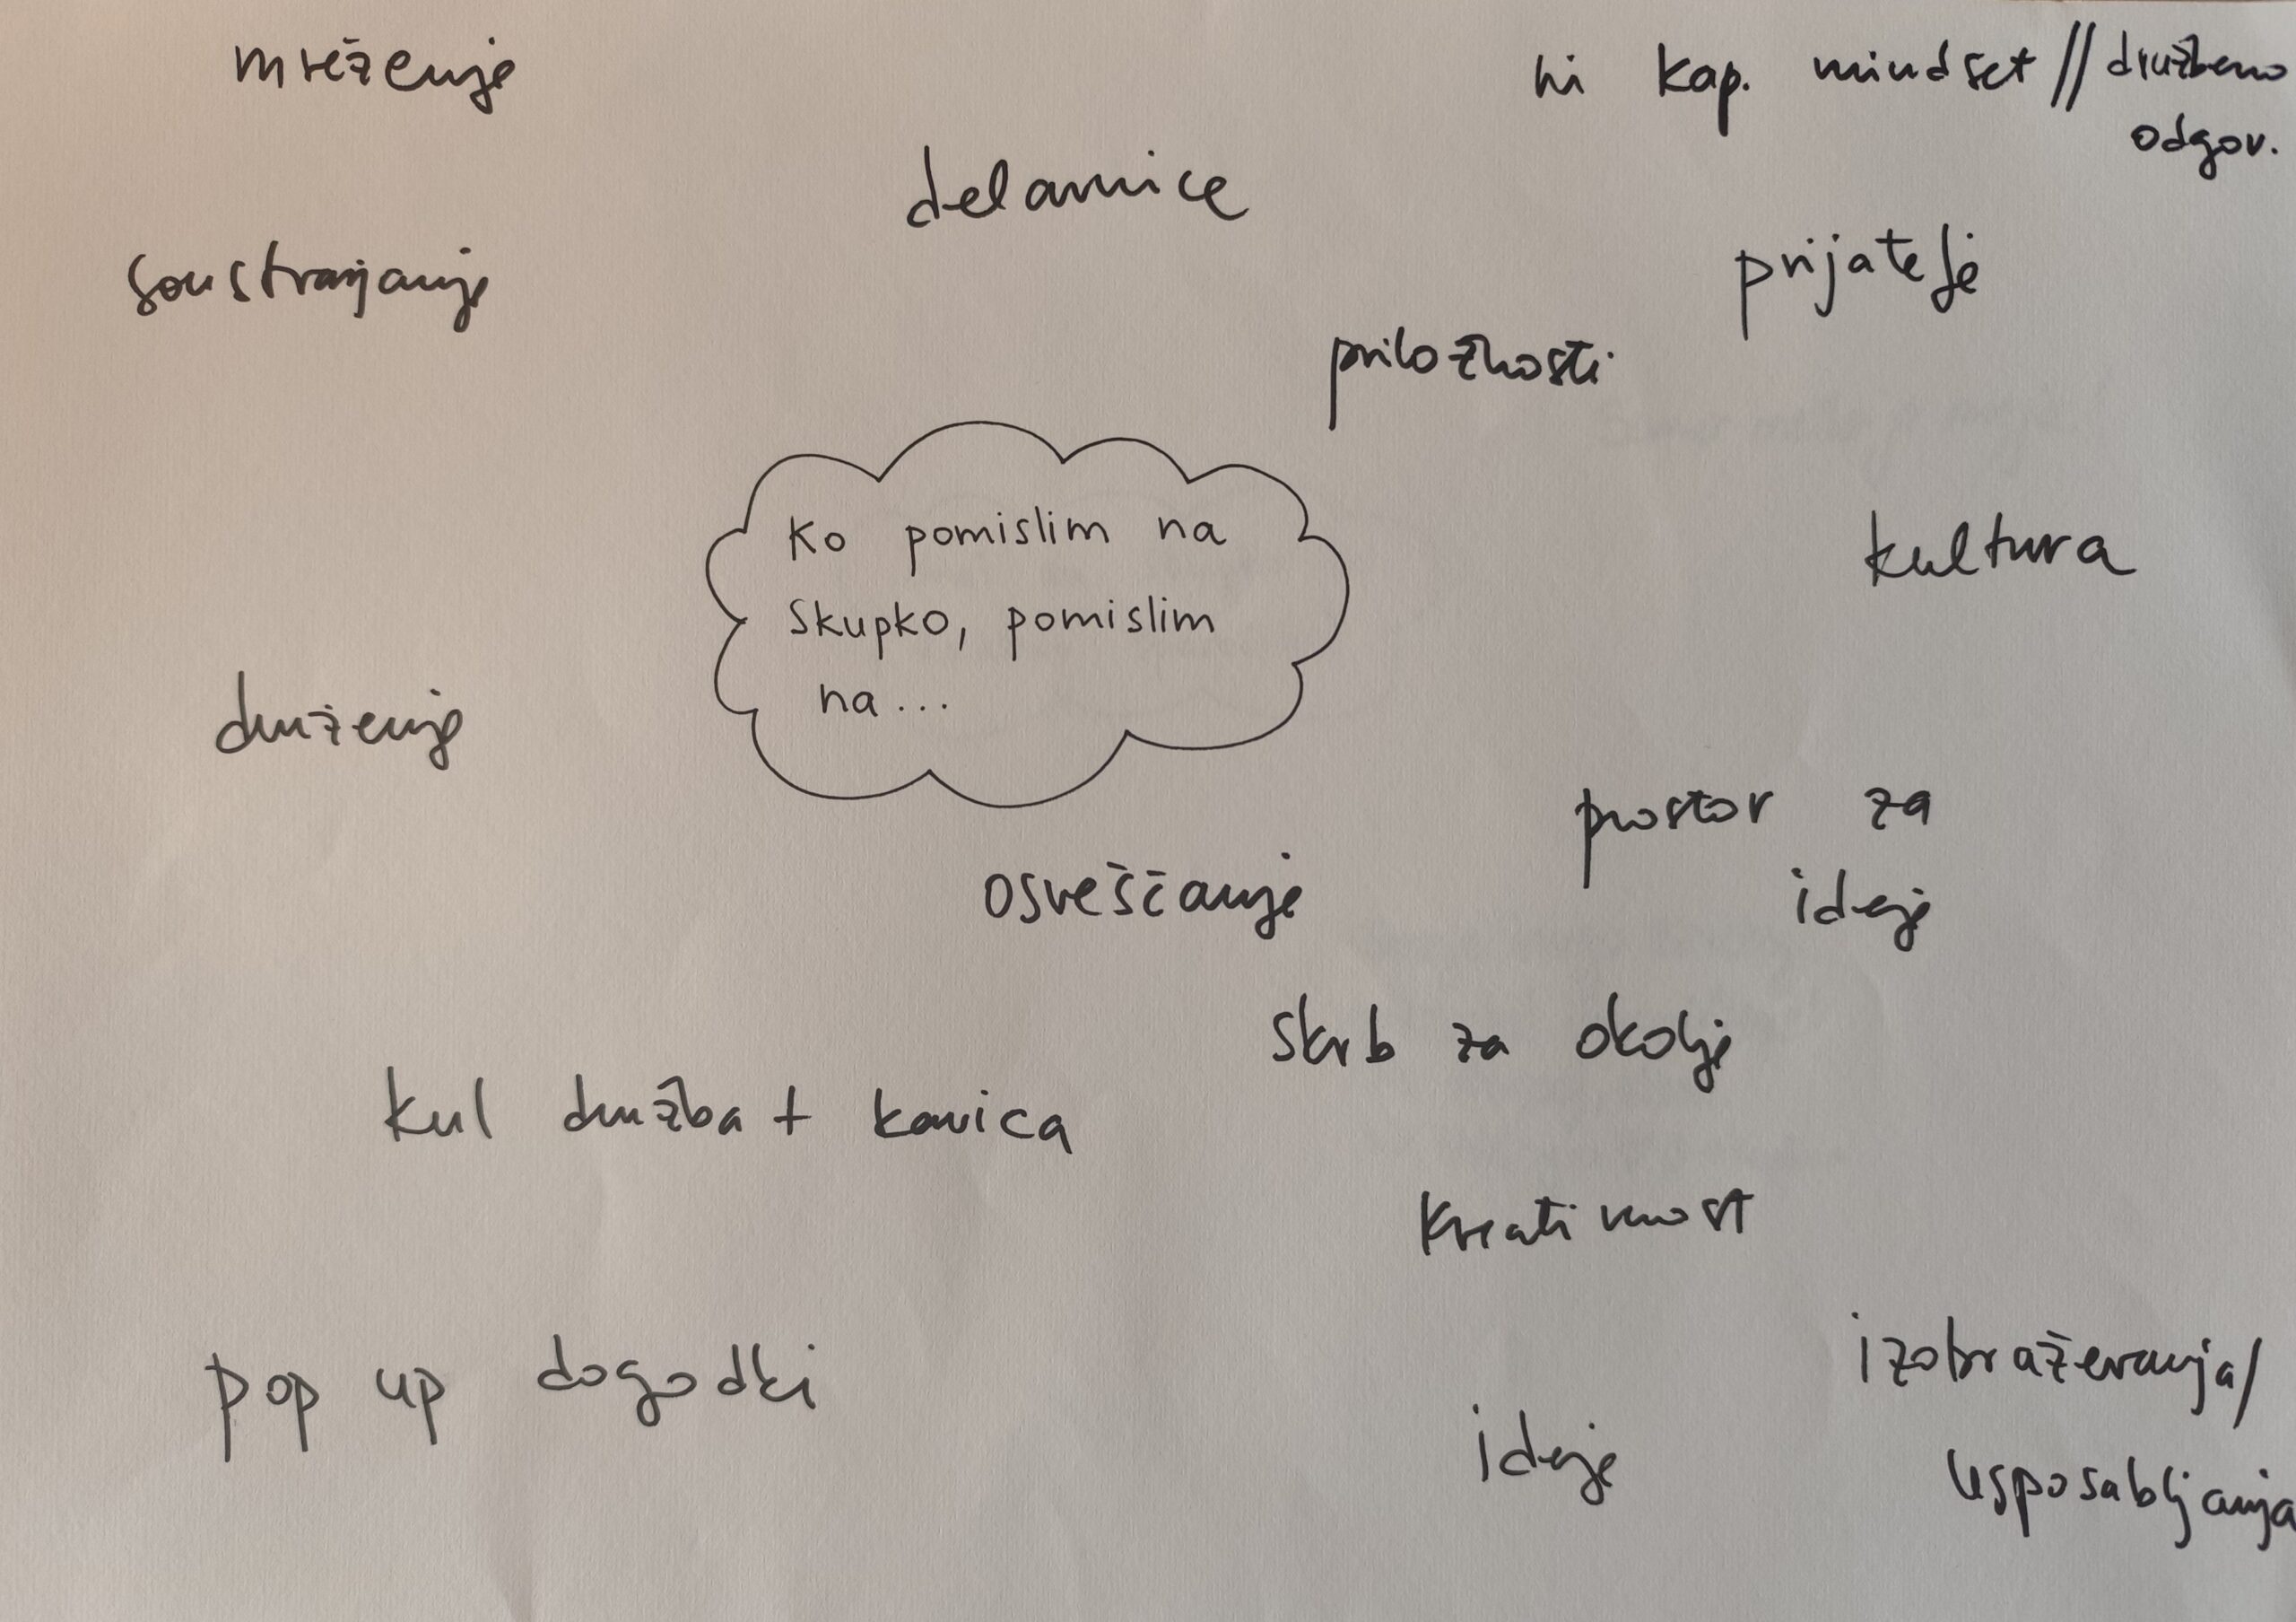 mreženje
ni kap. mindset // družbeno
odgov.
delavnice
soustvarjanje
prijatelje
priložnosti
Ko pomislim na
Skupko, pomislim
na...
kultura
druženje
prostor za
ideje
osveščanje
skrb za okolje
kul družba + kavica
kreativnost
pop up dogodki
izobraževanja/
usposabljanja
ideje